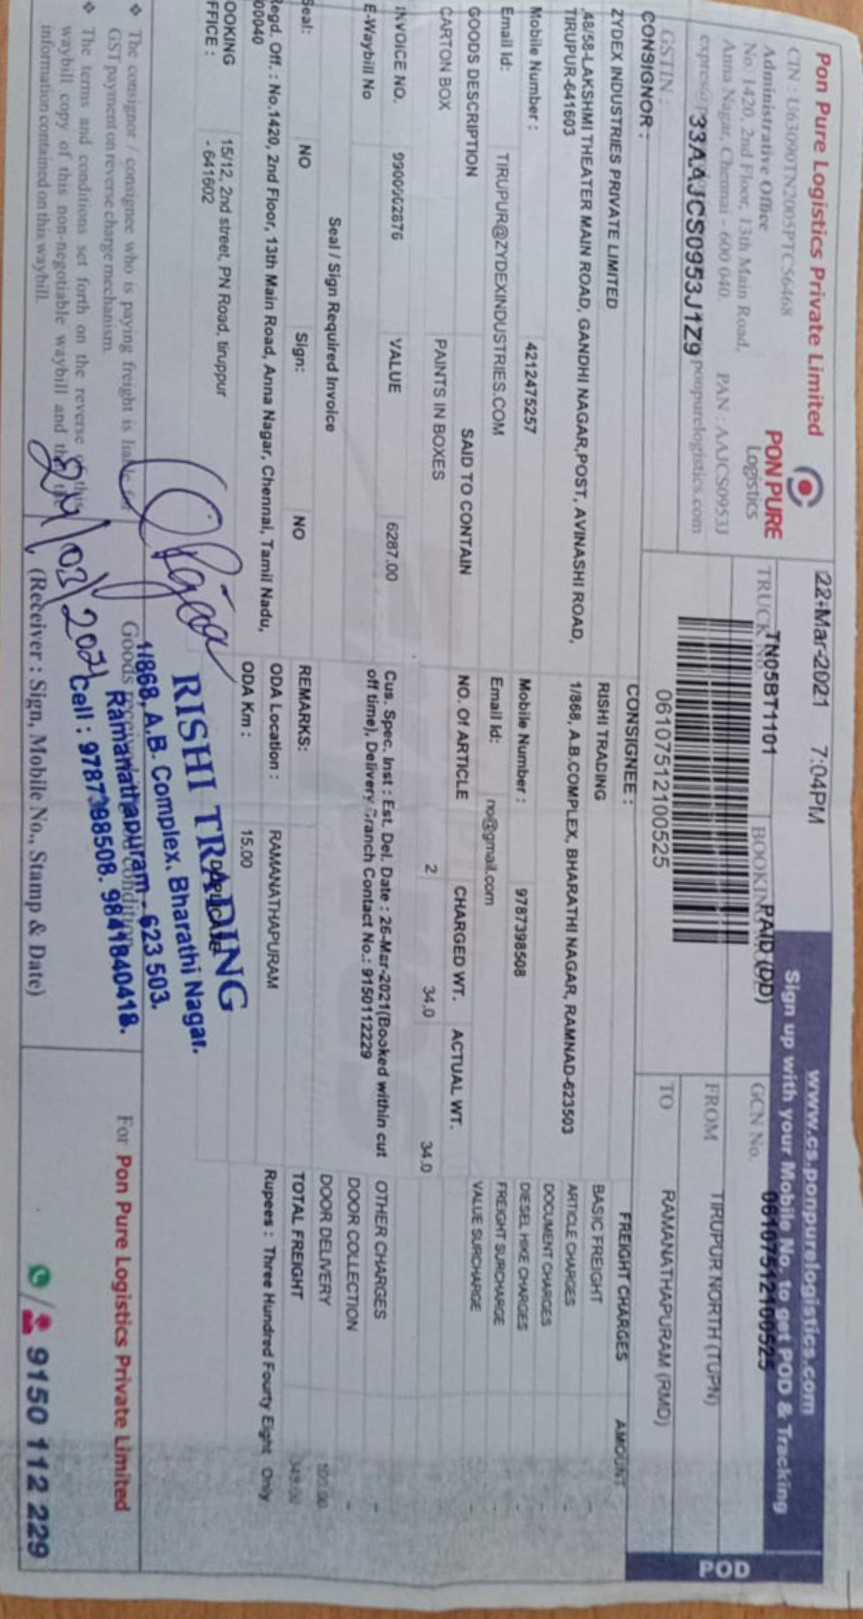 Pon Pure Logistics Private Limited
CIN : U63090TN2005PTC56468
Administrative Office
No. 1420, 2nd Floor, 13th Main Road,
Anna Nagar, Chennai - 600 040.
PAN : AAJCS0953J
ponpurelogistics.com
PON PURE
Logistics
GSTIN :
33AAJCS0953J1Z9
22-Mar-2021 7:04PM
TRUCK No.
TN05BT1101
PAID (DD)
06107512100525
www.cs.ponpurelogistics.com
Sign up with your Mobile No. to get POD & Tracking
GCN No.
06107512100525
FROM TIRUPUR NORTH (TUPN)
TO RAMANATHAPURAM (RMD)
POD
CONSIGNOR :
ZYDEX INDUSTRIES PRIVATE LIMITED
48/58-LAKSHMI THEATER MAIN ROAD, GANDHI NAGAR,POST, AVINASHI ROAD,
TIRUPUR-641603
Mobile Number : 4212475257
Email Id: TIRUPUR@ZYDEXINDUSTRIES.COM
CONSIGNEE :
RISHI TRADING
1/868, A.B.COMPLEX, BHARATHI NAGAR, RAMNAD-623503
Mobile Number : 9787398508
Email Id: no@gmail.com
GOODS DESCRIPTION SAID TO CONTAIN NO. Of ARTICLE CHARGED WT. ACTUAL WT.
CARTON BOX PAINTS IN BOXES 2 34.0 34.0
INVOICE NO. 9900002876 VALUE 6287.00
E-Waybill No
Cus. Spec. Inst : Est. Del. Date : 26-Mar-2021(Booked within cut
off time), Delivery Branch Contact No.: 9150112229
Seal / Sign Required Invoice
Seal: NO Sign: NO
REMARKS:
Regd. Off. : No.1420, 2nd Floor, 13th Main Road, Anna Nagar, Chennai, Tamil Nadu,
ODA Location : RAMANATHAPURAM
ODA Km : 15.00
OOKING
FFICE :
15/12, 2nd street, PN Road, tiruppur
- 641602
FREIGHT CHARGES AMOUNT
BASIC FREIGHT -
ARTICLE CHARGES -
DOCUMENT CHARGES -
DIESEL HIKE CHARGES -
FREIGHT SURCHARGE -
VALUE SURCHARGE -
OTHER CHARGES -
DOOR COLLECTION -
DOOR DELIVERY
TOTAL FREIGHT
Rupees : Three Hundred Fourty Eight Only
❖ The consignor / consignee who is paying freight is liable for
GST payment on reverse charge mechanism.
❖ The terms and conditions set forth on the reverse of this
waybill copy of this non-negotiable waybill and the
information contained on this waybill.
24/03/2021
RISHI TRADING
1/868, A.B. Complex. Bharathi Nagar.
Ramanathapuram - 623 503.
Cell : 9787398508. 9841840418.
(Receiver : Sign, Mobile No., Stamp & Date)
For Pon Pure Logistics Private Limited
9150 112 229